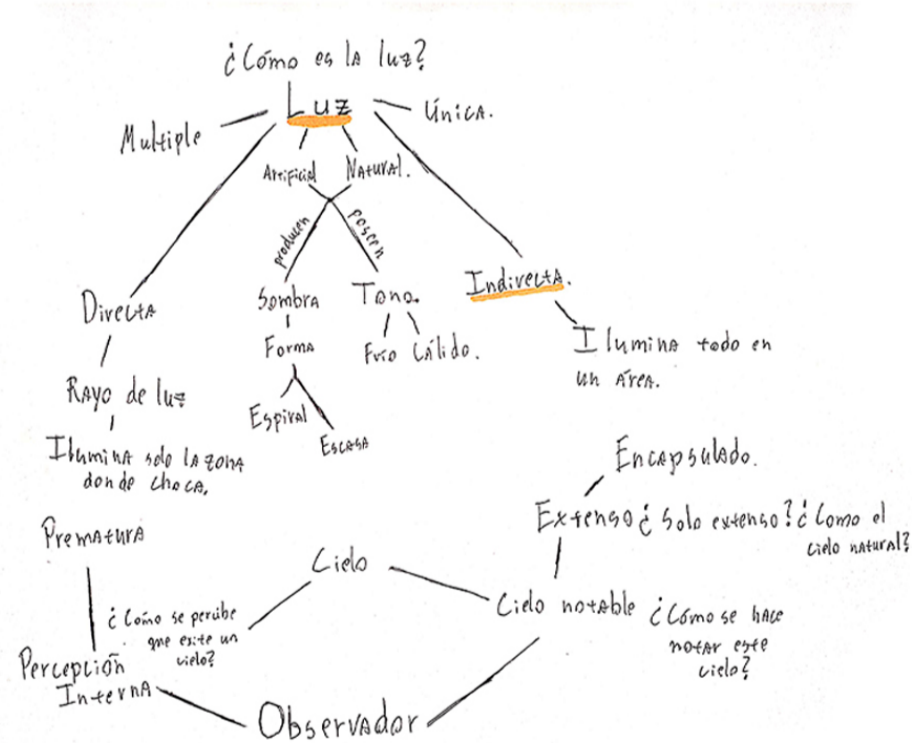 ¿Cómo es la luz?
Luz
Multiple
Única.
Artificial
Natural.
producen
poseen
Directa
Sombra
Tono.
Indirecta.
Forma
Frío Cálido.
Ilumina todo en
un área.
Rayo de luz
Espiral
Escasa
Ilumina solo la zona
donde choca.
Encapsulado.
Extenso ¿Solo extenso? ¿Como el
cielo natural?
Prematura
Cielo
¿Cómo se percibe
que existe un
cielo?
Cielo notable ¿Cómo se hace
notar este
cielo?
Percepción
Interna
Observador